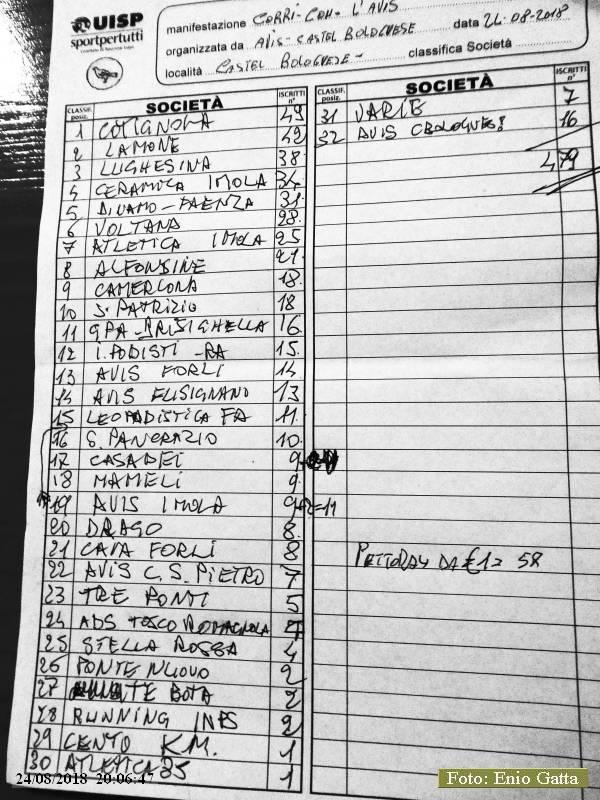 UISP
sportpertutti
manifestazione CORRI-CON L'AVIS
organizzata da AVIS-CASTEL BOLOGNESE data 24-08-2018
località CASTEL BOLOGNESE classifica Società
CLASSIF. posiz. SOCIETÀ ISCRITTI n°
1 COTIGNOLA 49
2 LAMONE 42
3 LUGHESINA 38
4 CERAMICA IMOLA 34
5 DINAMO-FAENZA 31
6 VOLTANA 28
7 ATLETICA IMOLA 25
8 ALFONSINE 21
9 CAMERLONA 18
10 S. PATRIZIO 18
11 GPA-BRISIGHELLA 16
12 I.PODISTI -RA 15
13 AVIS FORLI 14
14 AVIS FUSIGNANO 13
15 LEOPODISTICA FA 11
16 S. PANCRAZIO 10
17 CASADEI 9
18 MAMELI 9
19 AVIS IMOLA 9+2=11
20 DRAGO 8
21 CAVA FORLI 8
22 AVIS C.S. PIETRO 7
23 TRE PONTI 5
24 ADS TOSCO ROMAGNOLA 4
25 STELLA ROSSA 4
26 PONTE NUOVO 2
27 BOTA 2
28 RUNNING INPS 2
29 CENTO KM. 1
30 ATLETICA 85 1
CLASSIF. posiz. SOCIETÀ ISCRITTI n°
31 VARIE 7
32 AVIS CBOLOGNES 16
479
PETTORALI DA €1= 58
24/08/2018 20:06:47
Foto: Enio Gatta